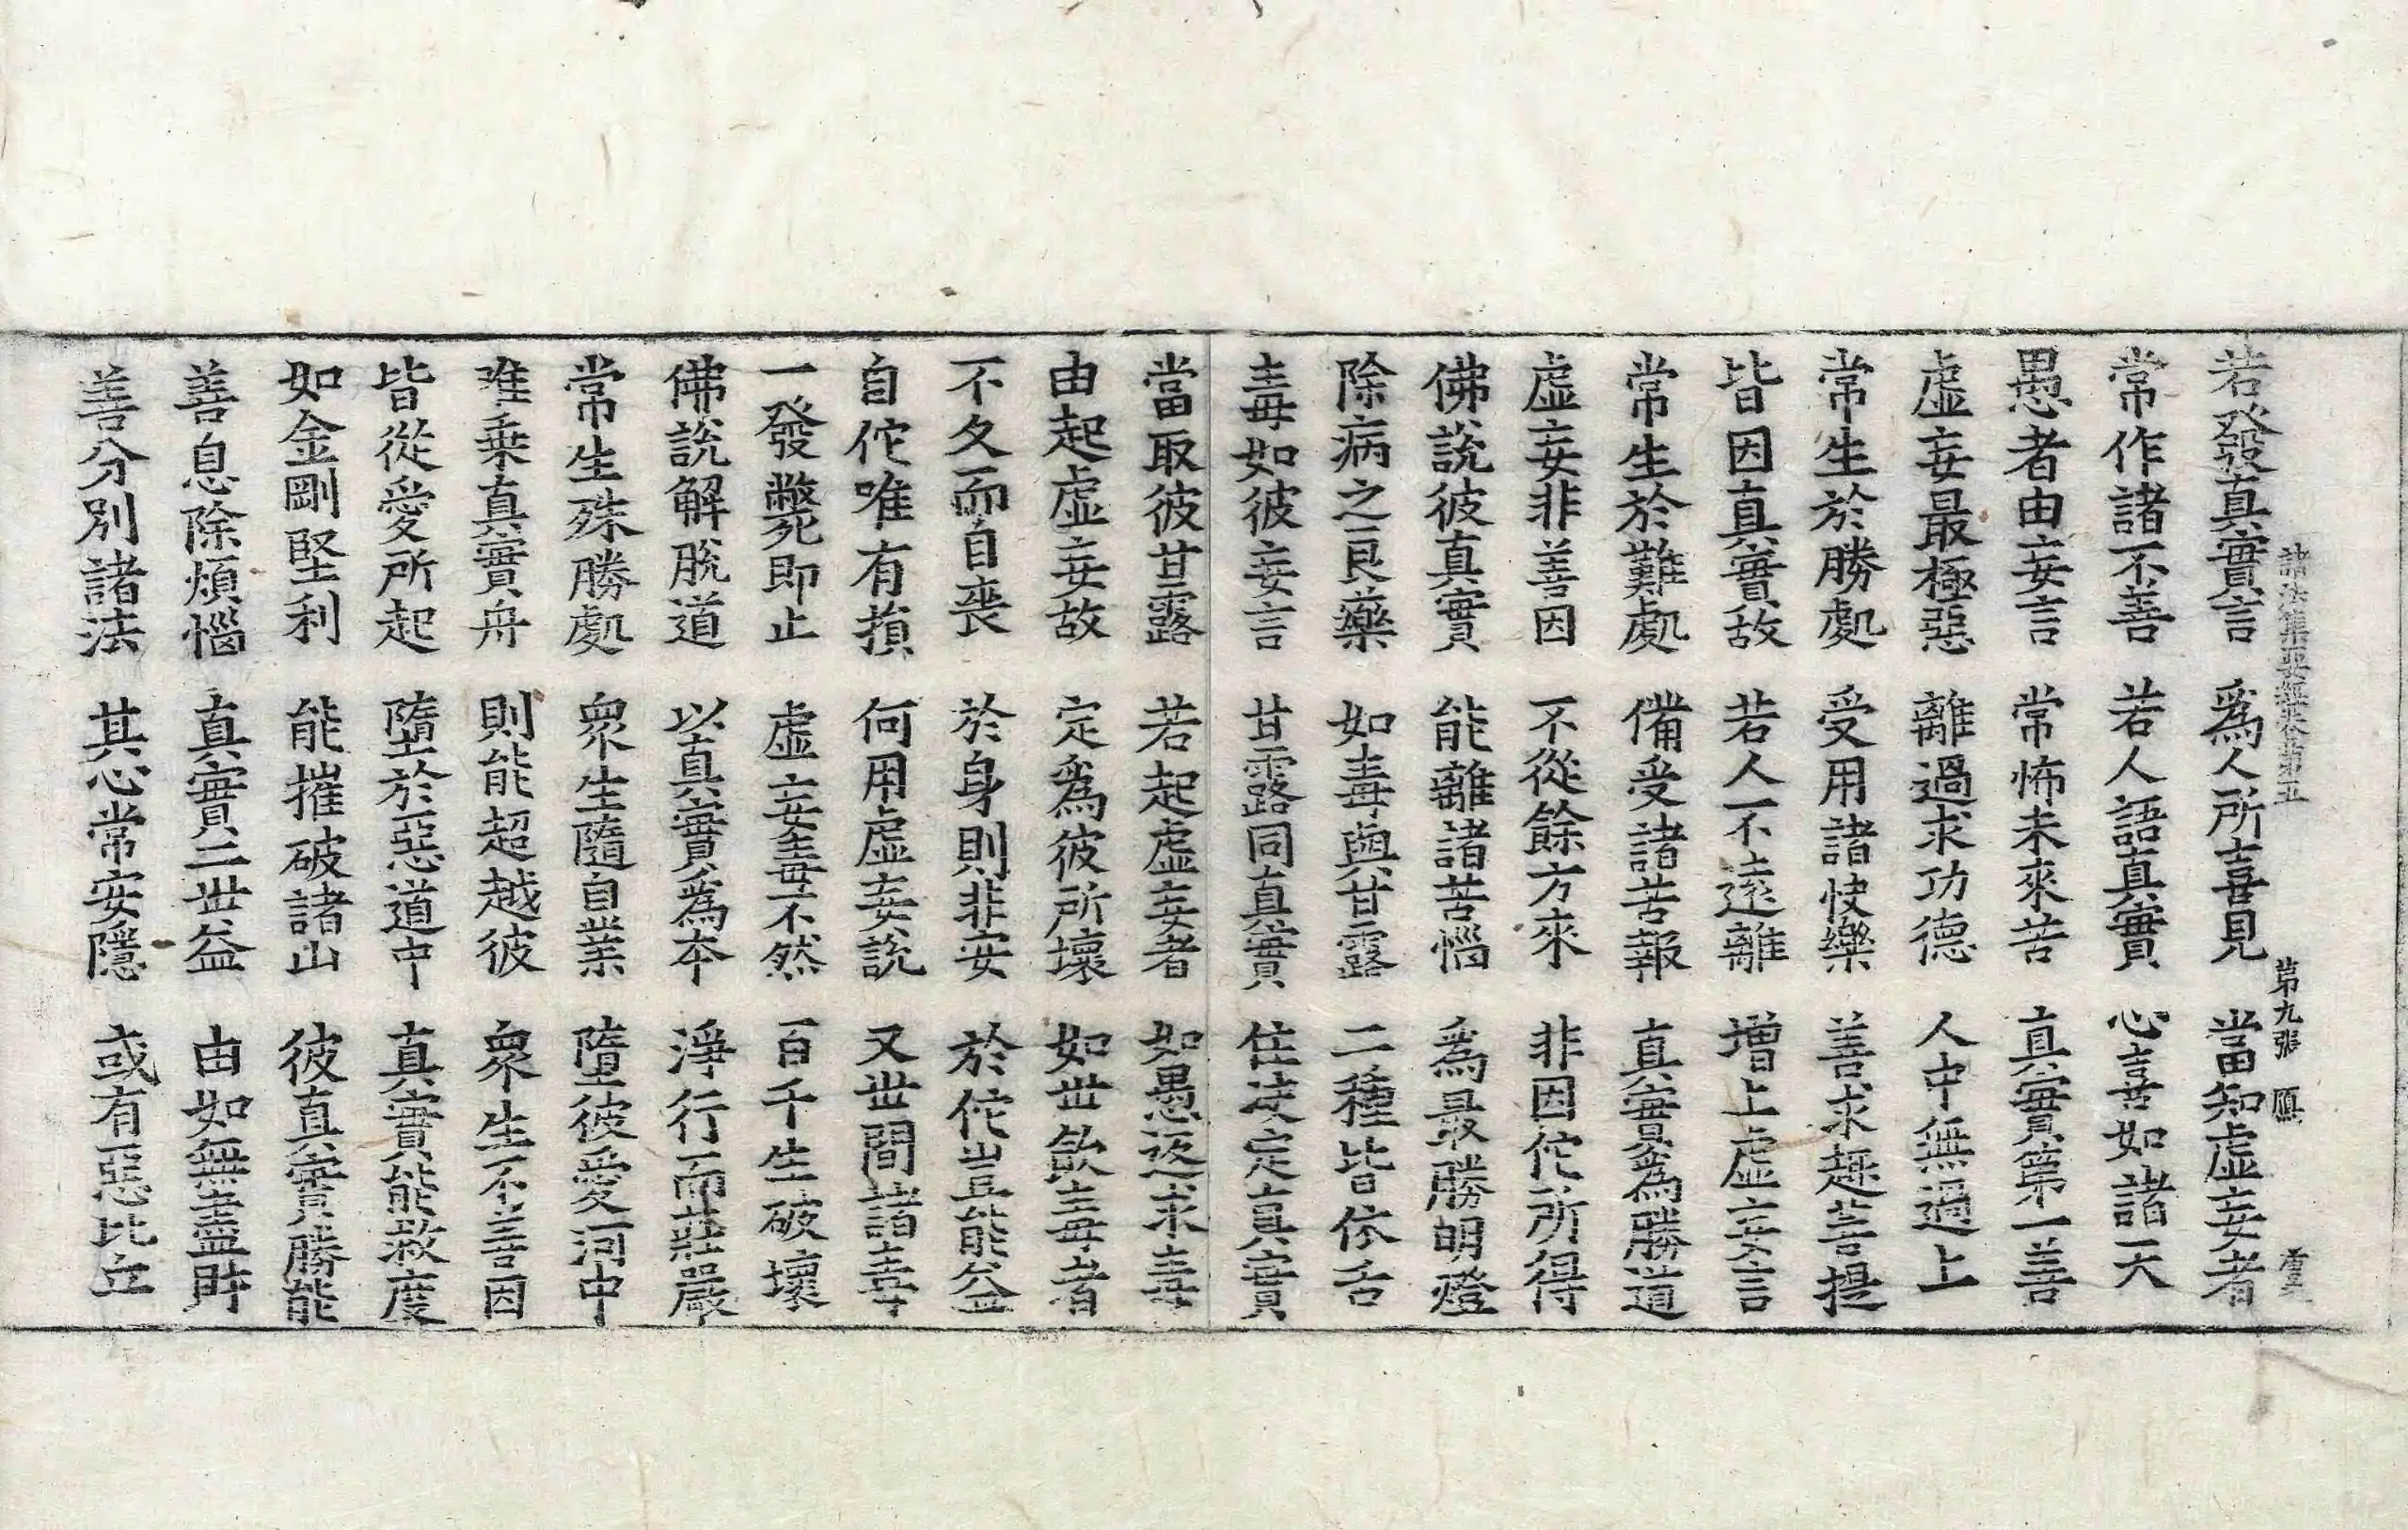 若發真實言 爲人所喜見 當知虛妄者
諸法集要經卷第五 第九張
常作諸不善 若人語真實 心喜如諸天
愚者由妄言 常怖未來苦 真實第一善
虛妄最極惡 離過求功德 人中無過上
常生於勝處 受用諸快樂 善求趣菩提
皆因真實故 若人不遠離 增上虛妄言
常生於難處 備受諸苦報 真實爲勝道
虛妄非善因 不從餘方來 非因佗所得
佛說彼真實 能離諸苦惱 爲最勝明燈
除病之良藥 如毒與甘露 二種皆依舌
毒如彼妄言 甘露同真實 住決定真實
當取彼甘露 若起虛妄者 如愚返求毒
由起虛妄故 定爲彼所壞 如世飲毒者
不久而自喪 於身則非安 於佗豈能益
自佗唯有損 何用虛妄說 又世間諸毒
一發斃即止 虛妄毒不然 百千生破壞
佛說解脫道 以真實爲本 淨行而莊嚴
常生殊勝處 衆生隨自業 墮彼愛河中
唯乗真實舟 則能超越彼 衆生不善因
皆從愛所起 墮於惡道中 真實能救度
如金剛堅利 能摧破諸山 彼真實勝能
善息除煩惱 真實二世益 由如無盡財
善分別諸法 其心常安隱 或有惡比丘